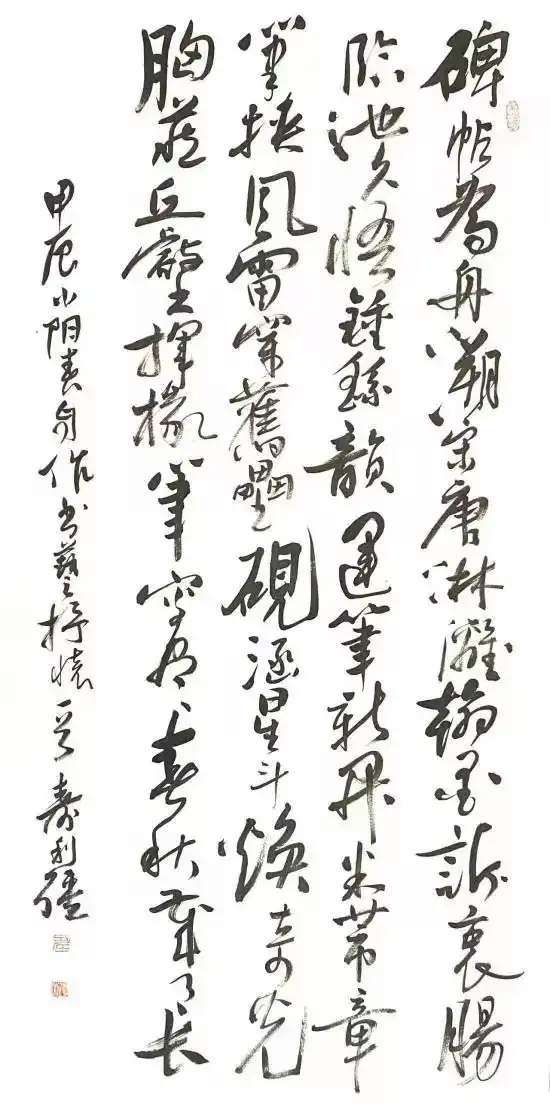 碑帖為舟溯宋唐淋灕翰墨訴衷腸
臨池久悟鍾繇韻運筆新開米芾章
筆挾風雷舊壘硯涵星斗煥奇光
胸藏丘壑揮椽筆寫盡春秋歲月长
甲辰小阳春自作书藝抒懷一首壽利